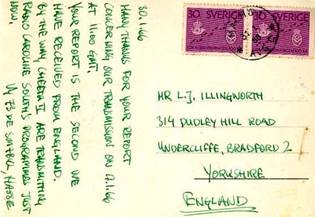 30.1.66
MANY THANKS FOR YOUR REPORT
CONCERNING OUR TRANSMISSION ON 17.1.66
AT 11.00 GMT.
YOUR REPORT IS THE SECOND WE
HAVE RECEIVED FROM ENGLAND.
BY THE WAY, CHEETA I ARE TRANSMITTING
RADIO CAROLINE SOUTH'S PROGRAMMES JUST
NOW.
73
30 SVERIGE
SVERIGE 30
MR L.J. ILLINGWORTH
314 DUDLEY HILL ROAD
UNDERCLIFFE, BRADFORD 2
YORKSHIRE
ENGLAND